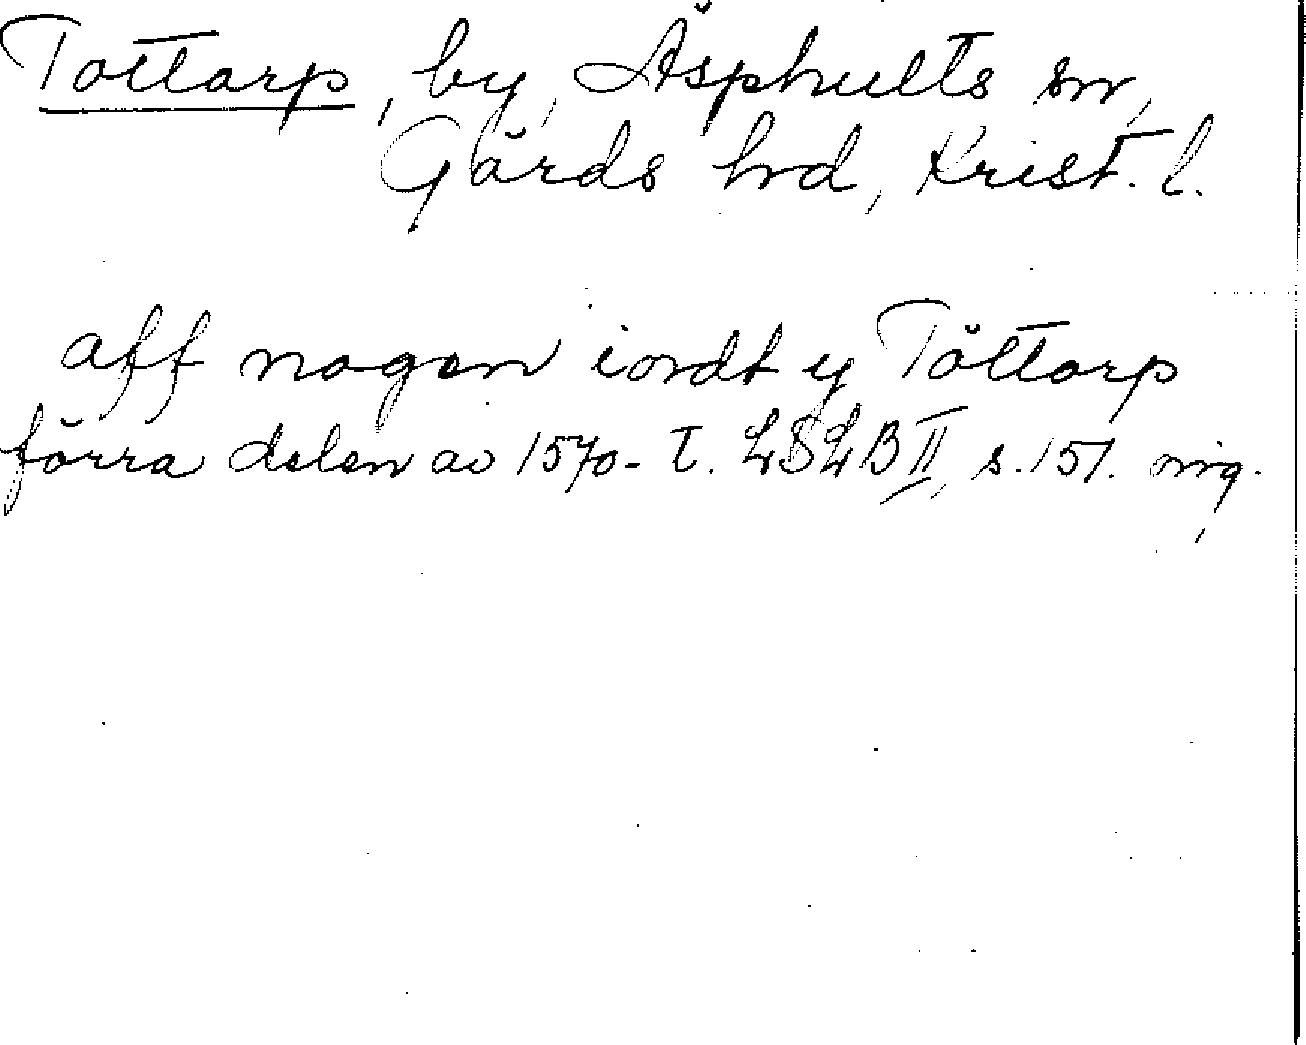 Tottarp, by, Äsphults sn,
Gärds hrd, Krist. l.
aff nogen iordt y Tåttarp
förra delen av 1570-t. LSLB II, s. 151. orig.